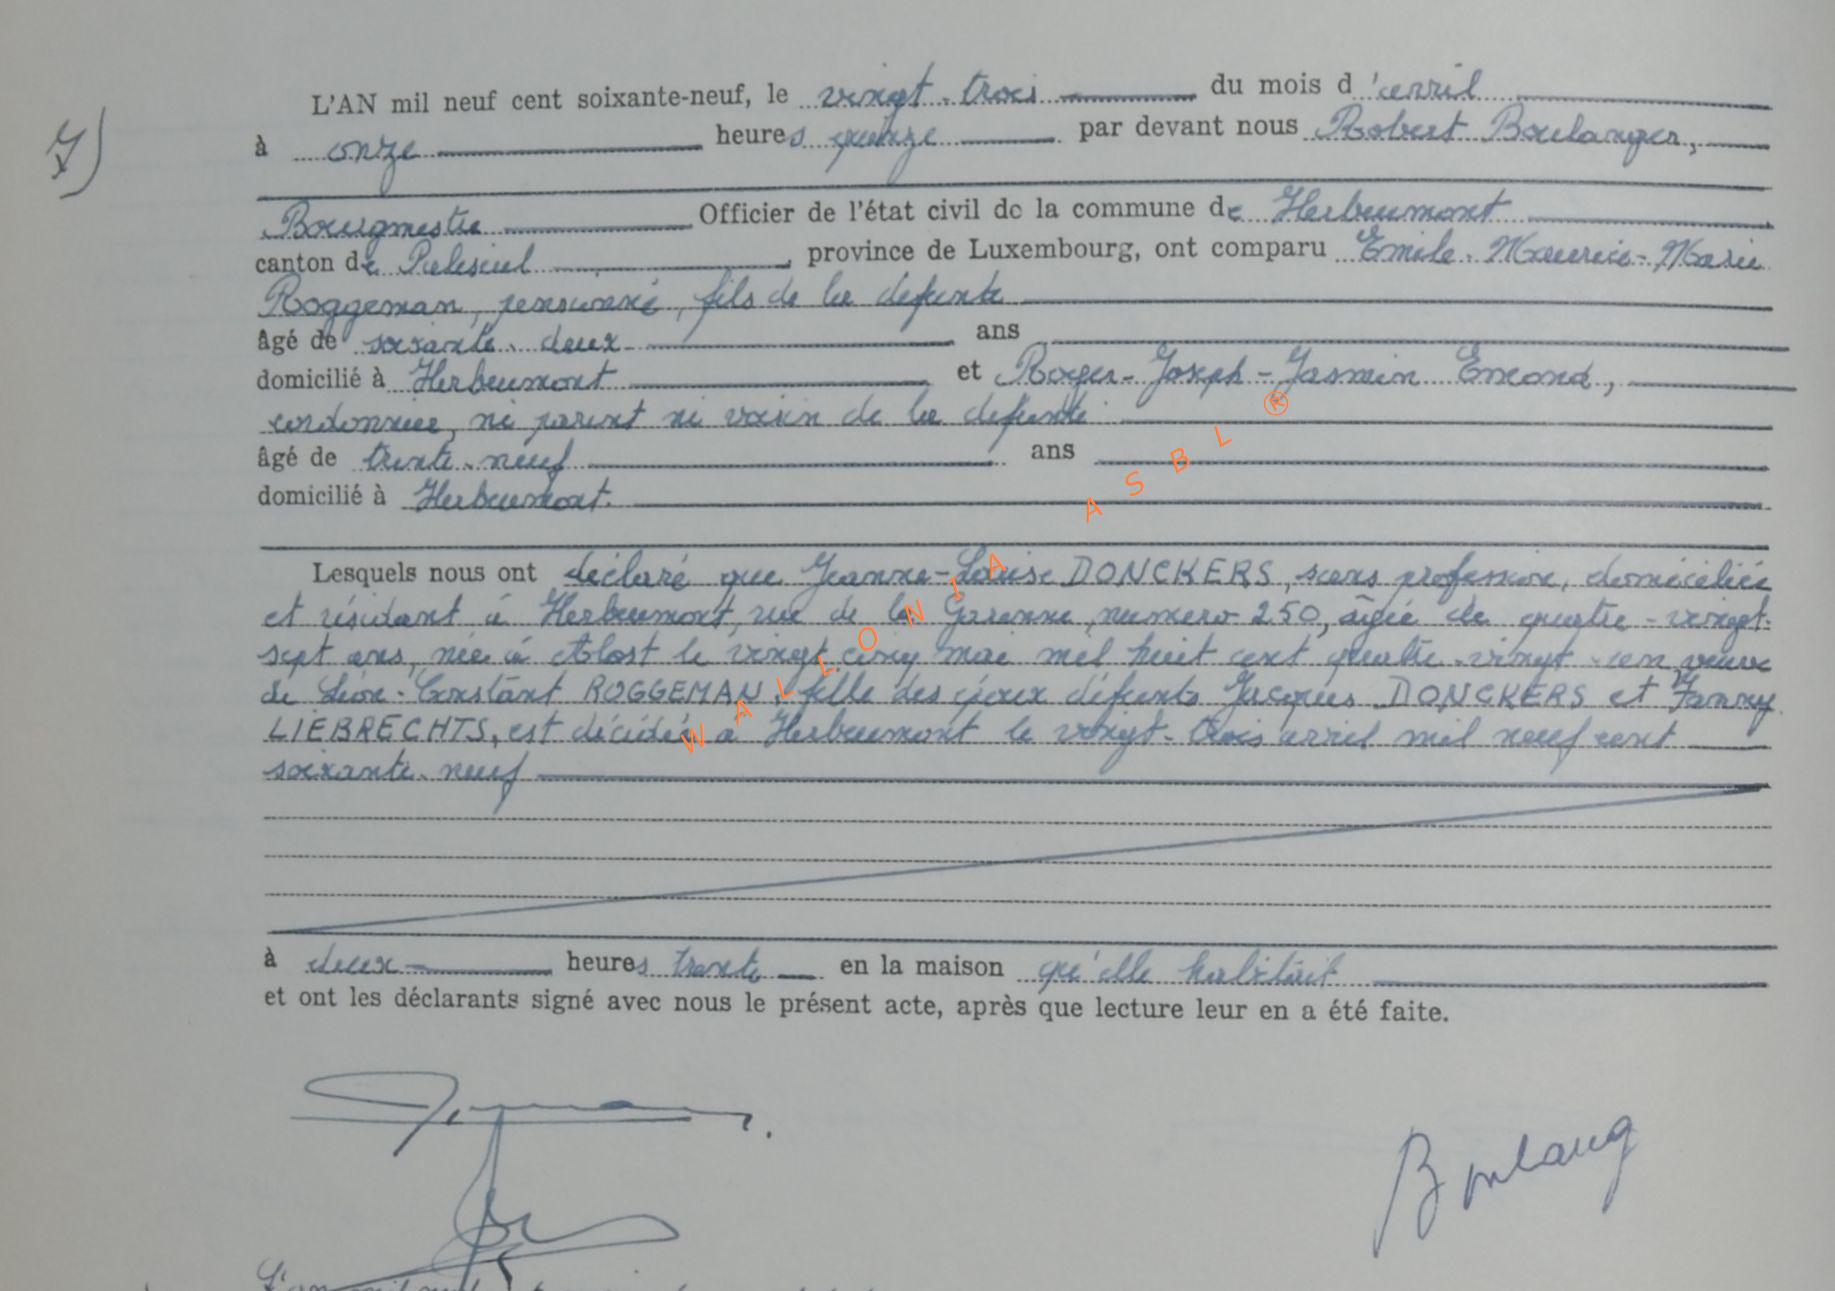 7)
L'AN mil neuf cent soixante-neuf, le vingt-trois du mois d'avril
à onze heures quinze par devant nous Robert Boulanger,
Bourgmestre Officier de l'état civil de la commune de Herbeumont
canton de Paliseul, province de Luxembourg, ont comparu Emile-Maurice-Marie
Roggeman, pensionné, fils de la défunte
âgé de soixante-deux ans
domicilié à Herbeumont et Roger-Joseph-Jasmin Emond,
cordonnier, ni parent ni voisin de la défunte
âgé de trente-neuf ans
domicilié à Herbeumont.
Lesquels nous ont déclaré que Jeanne-Louise DONCKERS, sans profession, domiciliée
et résidant à Herbeumont, rue de la Garenne, numéro 250, âgée de quatre-vingt-
sept ans, née à Alost le vingt-cinq mai mil huit cent quatre-vingt-un, veuve
de Léon-Constant ROGGEMAN, fille des époux défunts Jacques DONCKERS et Fanny
LIEBRECHTS, est décédée à Herbeumont le vingt-trois avril mil neuf cent
soixante-neuf
à deux heures trente en la maison qu'elle habitait
et ont les déclarants signé avec nous le présent acte, après que lecture leur en a été faite.
Boulang
WALLONIA ASBL ®